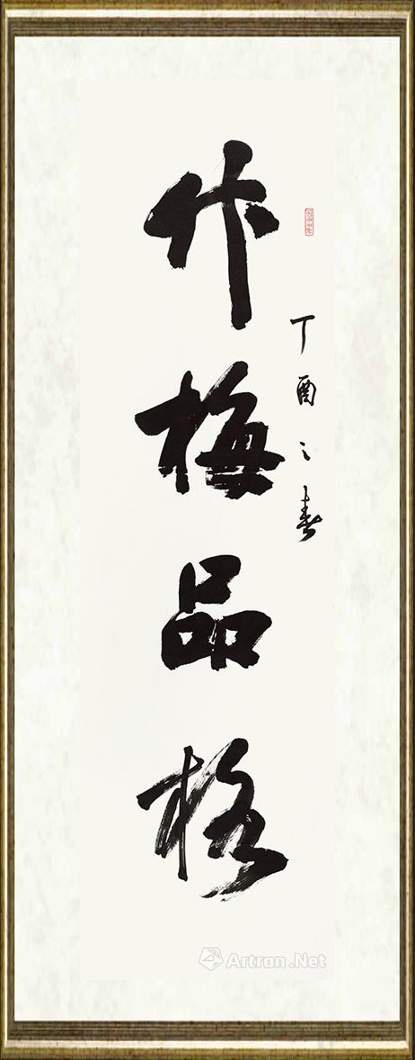 丁酉之春
竹梅品格
Artron.Net